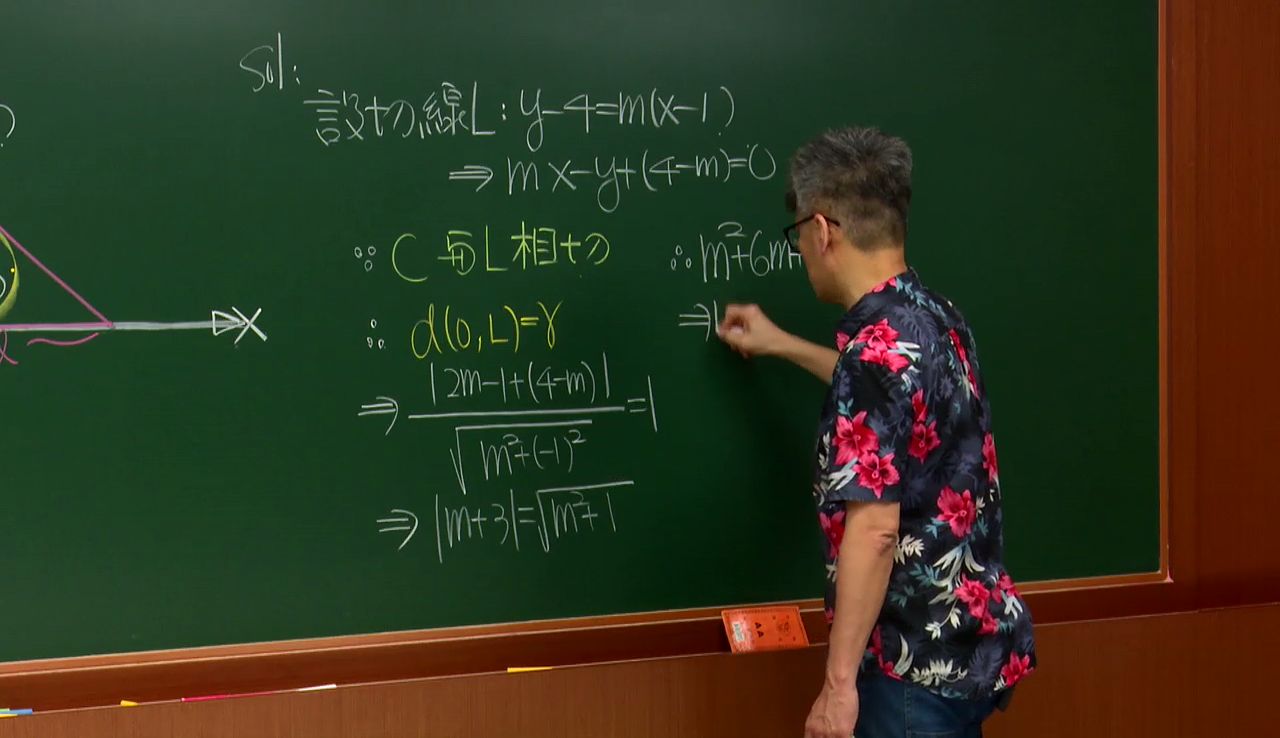 Sol:
設切線L:y-4=m(x-1)
⇒mx-y+(4-m)=0
∵C与L相切
∴d(O,L)=r
⇒|2m-1+(4-m)|/√(m²+(-1)²)=1
⇒|m+3|=√(m²+1)
∴m²+6m+
⇒
x